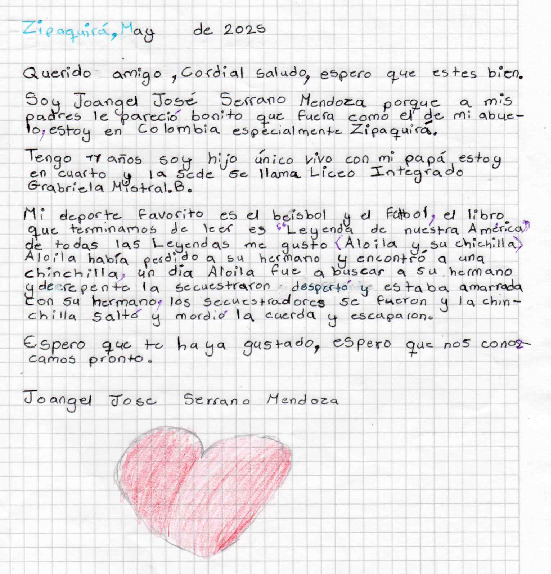 Zipaquirá, May de 2025
Querido amigo, Cordial saludo, espero que estes bien.
Soy Joangel José Serrano Mendoza porque a mis
padres le pareció bonito que fuera como el de mi abue-
lo, estoy en Colombia especialmente Zipaquirá.
Tengo 11 años soy hijo único vivo con mi papá estoy
en cuarto y la sede se llama Liceo Integrado
Gabriela Mistral.B.
Mi deporte favorito es el beisbol y el Fútbol, el libro
que terminamos de leer es "Leyenda de nuestra América"
de todas las Leyendas me gusto (Aloila y su chichilla)
Aloila había perdido a su hermano y encontró a una
chinchilla, un día Aloila fue a buscar a su hermano
y de repente la secuestraron despertó y estaba amarrada
con su hermano, los secuestradores se fueron y la chin-
chilla Saltó y mordió la cuerda y escaparon.
Espero que te haya gustado, espero que nos conoz-
camos pronto.
Joangel Jose Serrano Mendoza